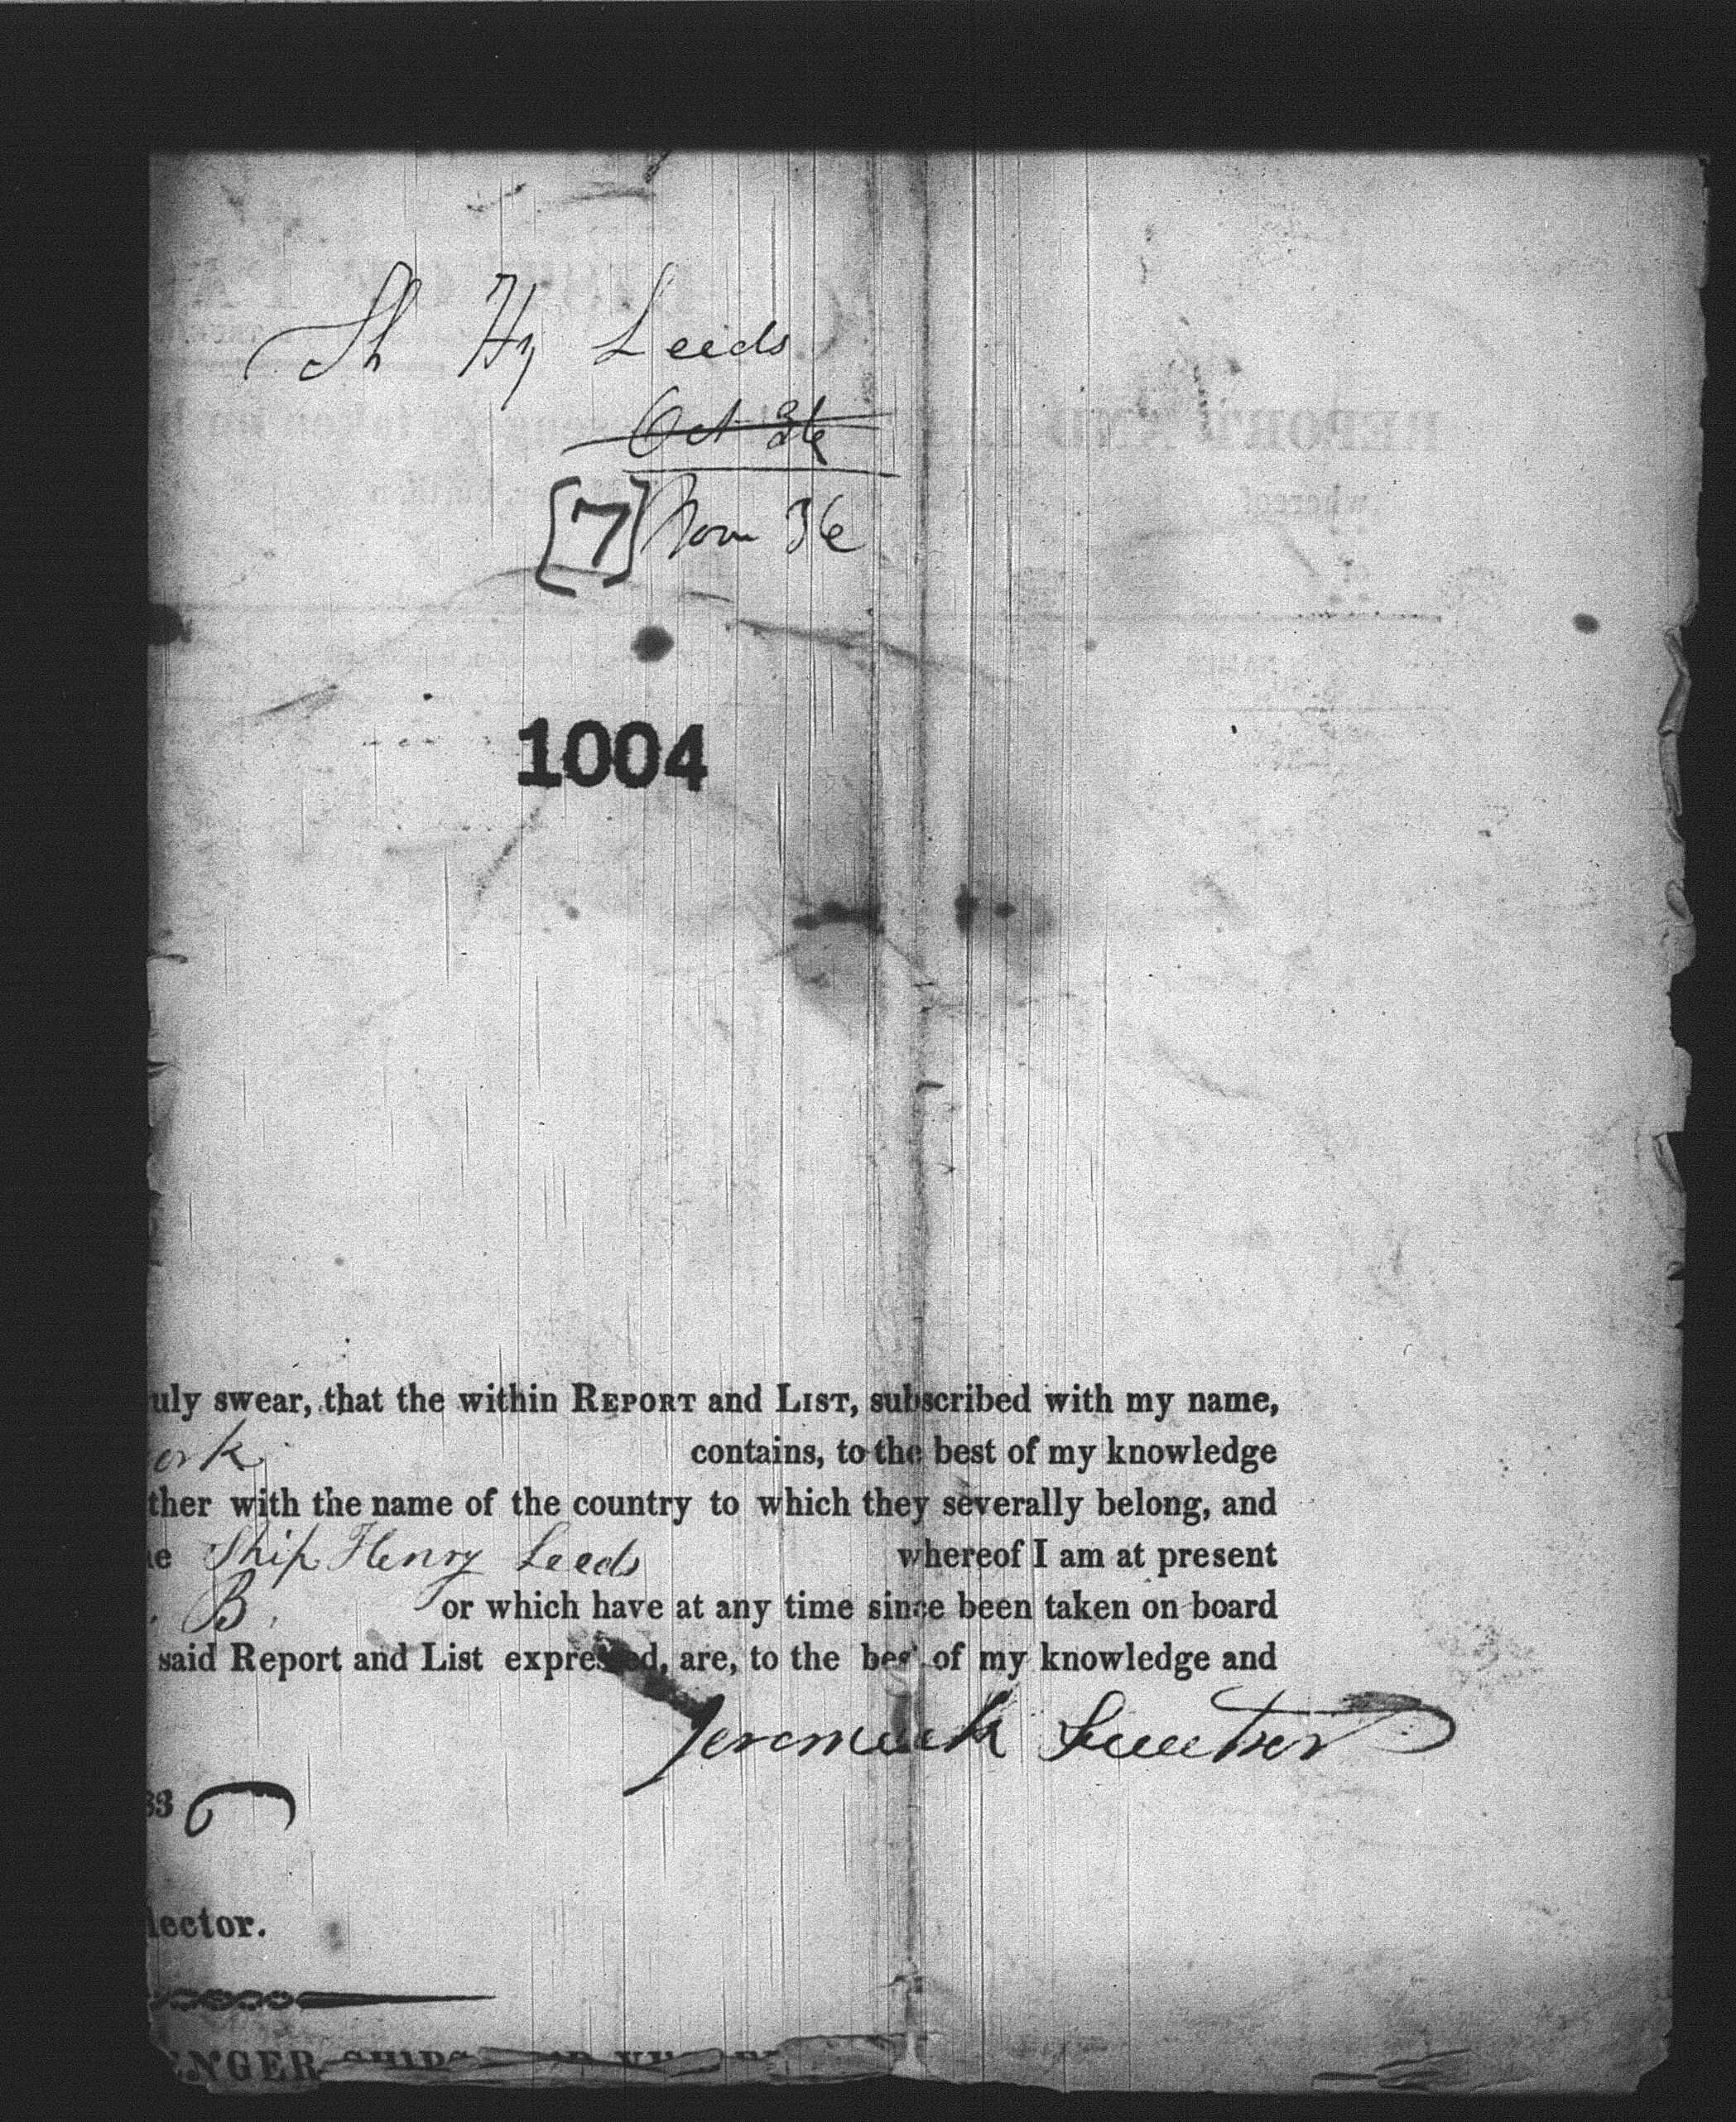 Sh Hy Leeds
Oct 36
[7] Nov 36
1004
uly swear, that the within REPORT and LIST, subscribed with my name,
ork contains, to the best of my knowledge
ther with the name of the country to which they severally belong, and
e Ship Henry Leeds whereof I am at present
. B. or which have at any time since been taken on board
said Report and List expressed, are, to the best of my knowledge and
Jeremiah
33 6
lector.
ENGER SHIPS